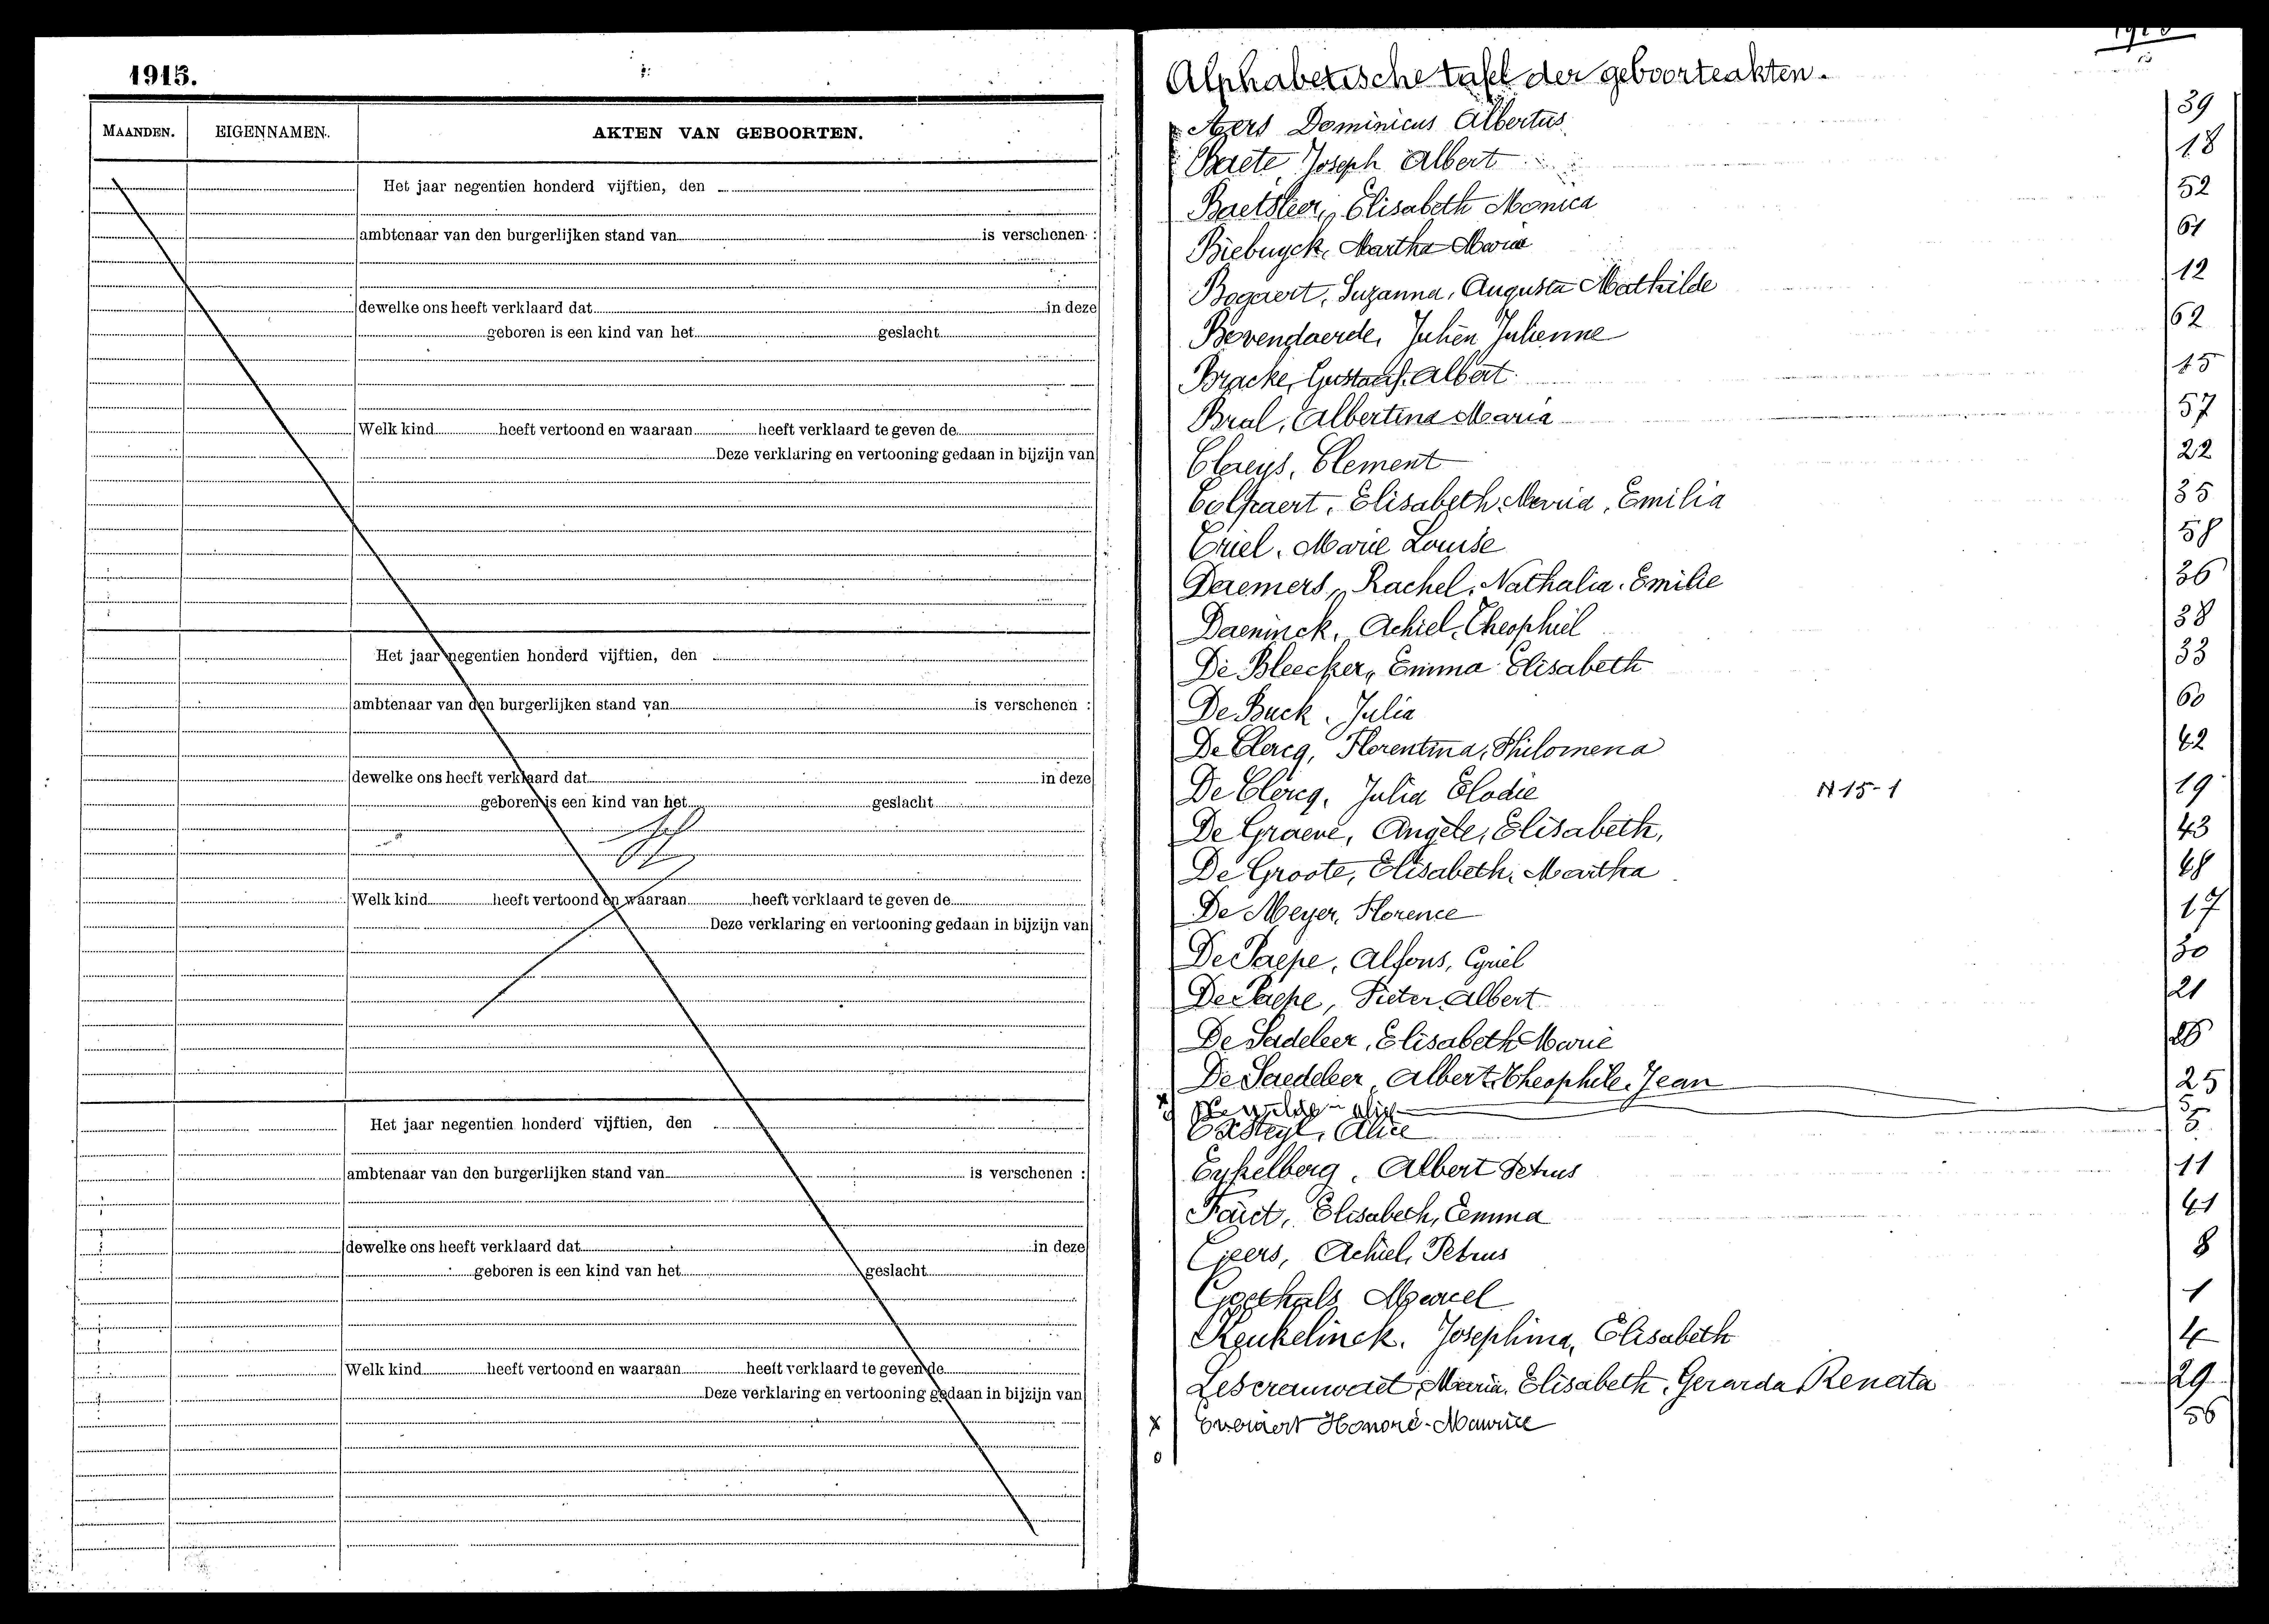 1915.
MAANDEN. EIGENNAMEN. AKTEN VAN GEBOORTEN.
Het jaar negentien honderd vijftien, den
ambtenaar van den burgerlijken stand van is verschenen :
dewelke ons heeft verklaard dat in deze
geboren is een kind van het geslacht
Welk kind heeft vertoond en waaraan heeft verklaard te geven de
Deze verklaring en vertooning gedaan in bijzijn van
Het jaar negentien honderd vijftien, den
ambtenaar van den burgerlijken stand van is verschenen :
dewelke ons heeft verklaard dat in deze
geboren is een kind van het geslacht
Welk kind heeft vertoond en waaraan heeft verklaard te geven de
Deze verklaring en vertooning gedaan in bijzijn van
Het jaar negentien honderd vijftien, den
ambtenaar van den burgerlijken stand van is verschenen :
dewelke ons heeft verklaard dat in deze
geboren is een kind van het geslacht
Welk kind heeft vertoond en waaraan heeft verklaard te geven de
Deze verklaring en vertooning gedaan in bijzijn van
Alphabetische tafel der geboorteakten.
Aers Dominicus Albertus 39
Baete, Joseph Albert 18
Baetsleer, Elisabeth Monica 52
Biebuyck, Martha Maria 61
Bogaert, Suzanna, Augusta Mathilde 12
Bovendaerde, Julien Julienne 62
Bracke, Gustaaf Albert 15
Bral, Albertina Maria 57
Claeys, Clement 22
Colpaert, Elisabeth Maria, Emilia 35
Criel, Marie Louise 58
Daemers, Rachel, Nathalia, Emilie 36
Daeninck, Achiel, Theophiel 38
De Bleecker, Emma Elisabeth 33
De Buck, Julia 60
De Clercq, Florentina, Philomena 42
De Clercq, Julia Elodie N 15-1 19
De Graeve, Angèle, Elisabeth, 43
De Groote, Elisabeth, Martha 48
De Meyer, Florence 17
De Paepe, Alfons, Cyriel 30
De Paepe, Pieter Albert 21
De Sadeleer, Elisabeth Marie 26
De Saedeleer, Albert, Theophile, Jean 25
x De wilde 5
Alice 5
Eykelberg, Albert Petrus 11
Faict, Elisabeth, Emma 41
Geers, Achiel, Petrus 8
Goethals Marcel 1
Keukelinck, Josephina, Elisabeth 4
Lescrauwaet, Maria, Elisabeth, Gerarda Renata 29
x Everaert Honoré-Maurice 56
o